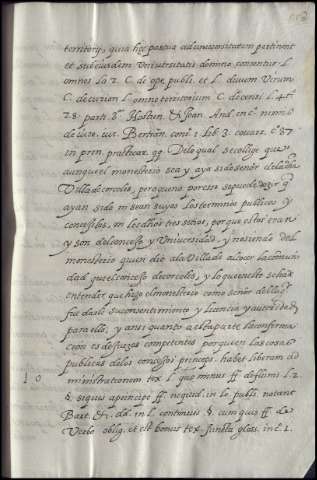 territorij, quia hęc potius ad uniuersitatem pertinent
et sub eiusdem Vniuersitatis dominio consentur L
omnes la 2. C. de ope. publi. et L. diuum Verum
C. de curion L. omne territorium C. de censi. L. 4.
28. parti. 8. Hostien. & Joan. And. en c. nimis
de iure. iur. Bertran. cons. 2 lib. 3. couarr. c. 37
in prin. practicar. qq. Delo qual se collige que
aunque el monesterio sea y aya sido señor de la dha
Villa de corcoles, pero que no por esso se puede dezir q
ayan sido ni sean suyos los terminos publicos y
concejiles, ni los dhos tres setios, porque estos eran
y son del concejo, y Vniuersidad, y no siendo del
monesterio quien dio a la Villa de alcocer la comuni
dad fue el concejo de corcoles, y lo que en esto se ha de
entender que hizo el monesterio como señor della
fue darle su consentimiento y licencia y autoridad
para ello, y ansi quanto a esta parte la confirma
cion es de juezes competentes porque en las cosas
publicas de los concejos princeps habet liberam ad
10 ministrationem tex. L. que minus ff. de flumi. L. 2
§. si quis a principe ff. ne quid. in lo. publi. notant
Bart. &. dd. in L. continuus §. cum quis ff. de
Verbo. oblig. et est bonus tex. iuncta glos. in c. 1.